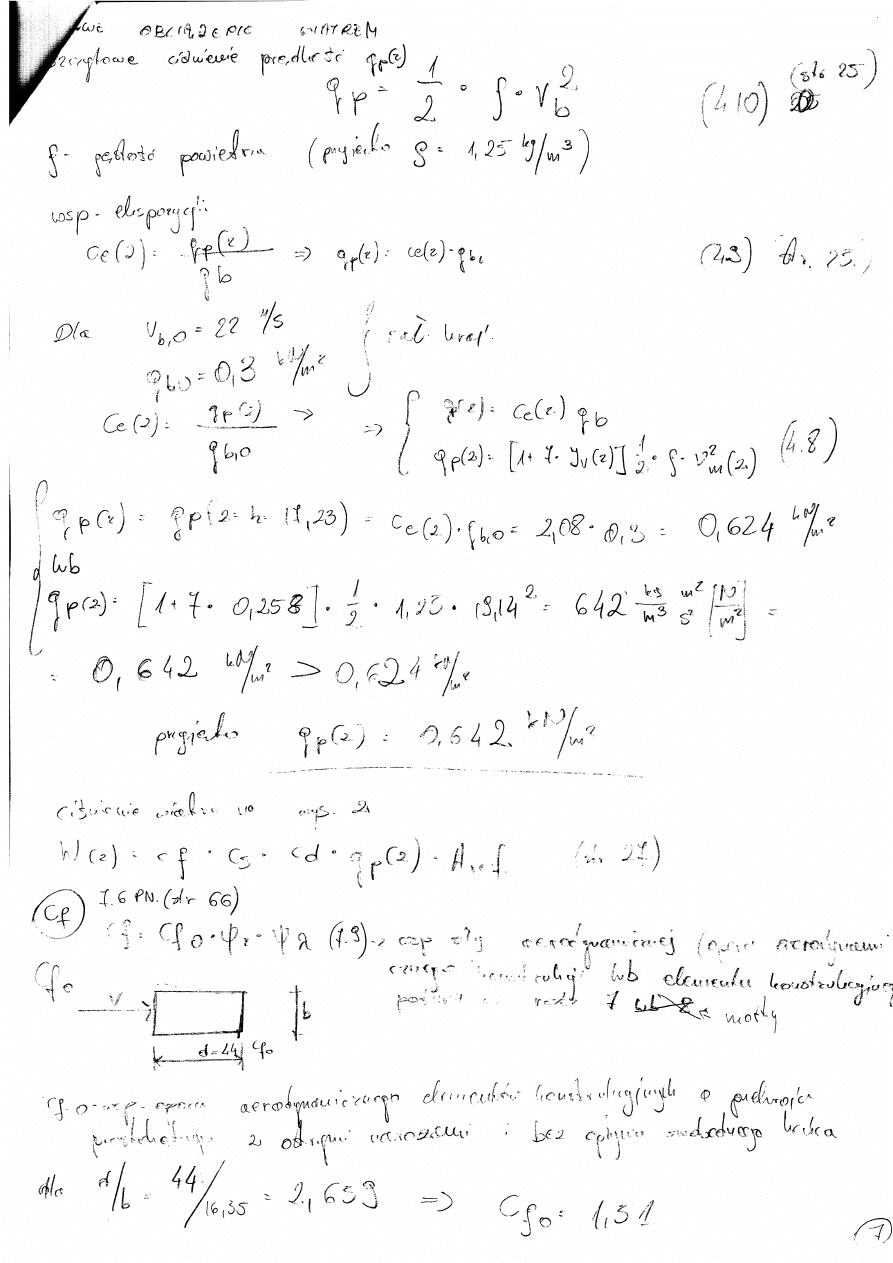 OBCIĄŻENIE WIATREM
ciśnienie prędkości qp(z)
qp = 1/2 · ρ · Vb² (4.10) (str 25)
ρ - gęstość powietrza (przyjęto ρ = 1,25 kg/m³)
wsp. ekspozycji
Ce(z) = qp(z)/qb => qp(z) = ce(z)·qb (4.9) str. 25
Dla Vb,0 = 22 m/s
qb,0 = 0,3 kN/m²
Ce(z) = qp(z)/qb,0 => => qp(z) = Ce(z) qb
qp(z) = [1 + 7 · Iv(z)] 1/2 · ρ · v²m(z) (4.8)
qp(z) = qp(z = h = 17,23) = Ce(z)·qb,0 = 2,08 · 0,3 = 0,624 kN/m²
lub
qp(z) = [1 + 7 · 0,258] · 1/2 · 1,25 · 19,14² = 642 kg/m³ m²/s² [N/m²] =
= 0,642 kN/m² > 0,624 kN/m²
przyjęto qp(z) = 0,642 kN/m²
ciśnienie wiatru na wys. z
W(z) = cf · cs · cd · qp(z) · Aref (str 27)
Cf 7.6 PN. (str 66)
Cf = Cf0 · ψr · ψλ (7.9) -> wsp siły aerodynamicznej (oporu aerodynami
cznego konstrukcji lub elementu konstrukcyjnego
7 lub 8 mosty
Cf0
V
b
d=44 Cf0
Cf,0 - wsp. oporu aerodynamicznego elementów konstrukcyjnych o przekroju
prostokątnym z ostrymi narożami i bez opływu swobodnego końca
dla d/b = 44/16,55 = 2,659 => Cf0 = 1,51
7